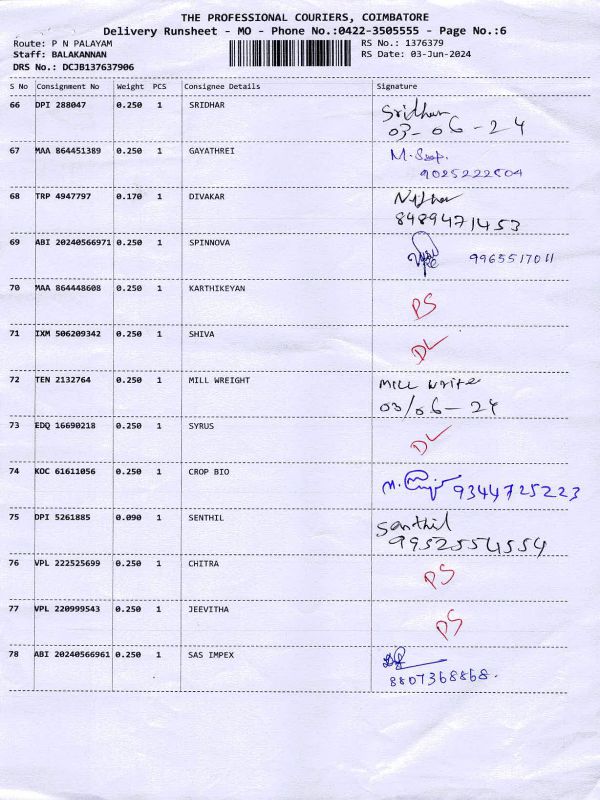 THE PROFESSIONAL COURIERS, COIMBATORE
Delivery Runsheet - MO - Phone No.:0422-3505555 - Page No.:6
Route: P N PALAYAM RS No.: 1376379
Staff: BALAKANNAN RS Date: 03-Jun-2024
DRS No.: DCJB137637906
S No Consignment No Weight PCS Consignee Details Signature
66 DPI 288047 0.250 1 SRIDHAR Sridhar
03-06-24
67 MAA 864451389 0.250 1 GAYATHREI M.
9025222804
68 TRP 4947797 0.170 1 DIVAKAR
8489471453
69 ABI 20240566971 0.250 1 SPINNOVA 9965517011
70 MAA 864448608 0.250 1 KARTHIKEYAN PS
71 IXM 506209342 0.250 1 SHIVA DL
72 TEN 2132764 0.250 1 MILL WREIGHT Mill write
03/06-24
73 EDQ 16690218 0.250 1 SYRUS DL
74 KOC 61611056 0.250 1 CROP BIO 9344725223
75 DPI 5261885 0.090 1 SENTHIL Senthil
9952554554
76 VPL 222525699 0.250 1 CHITRA PS
77 VPL 220999543 0.250 1 JEEVITHA PS
78 ABI 20240566961 0.250 1 SAS IMPEX
8807368868.